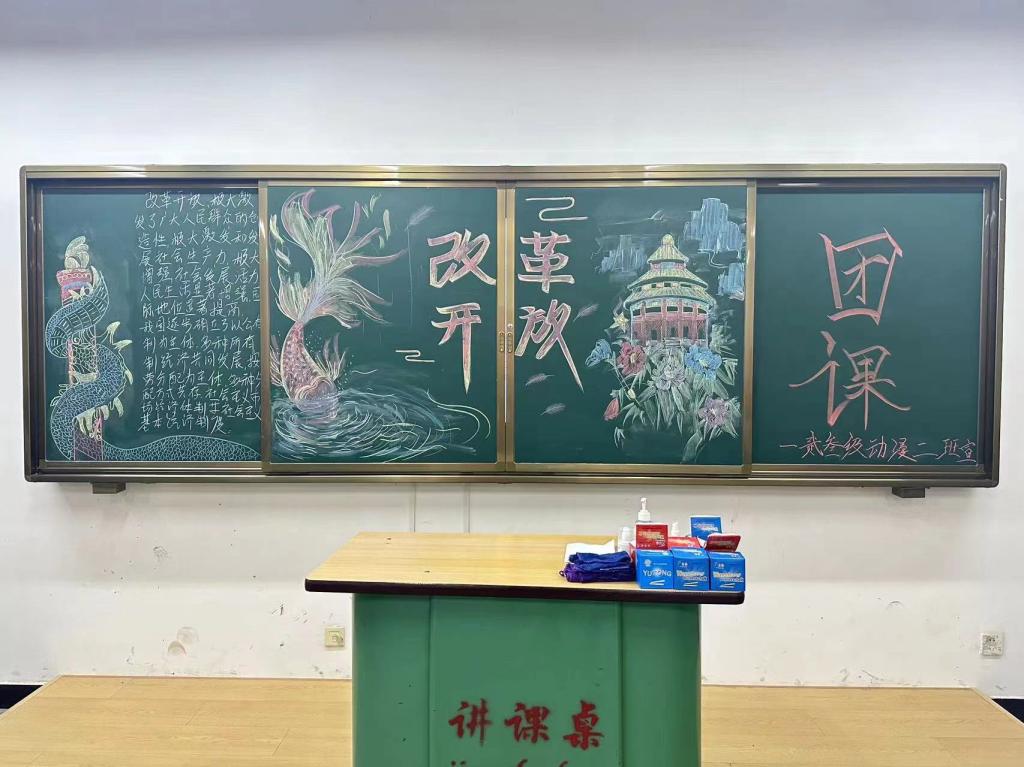 改革开放,极大激
发了广大人民群众的创
造性,极大激发和发
展社会生产力,极大
增强社会发展活力
人民生活显著改善,国
际地位显著提高.
我国逐步确立了以公有
制为主体,多种所有
制经济共同发展,按
劳分配为主体,多种分
配方式共存,社会主义市
场经济体制等社会主义
基本经济制度.
改革
开放
团
课
一贰叁级动漫二班宣
YUTONG
讲课桌